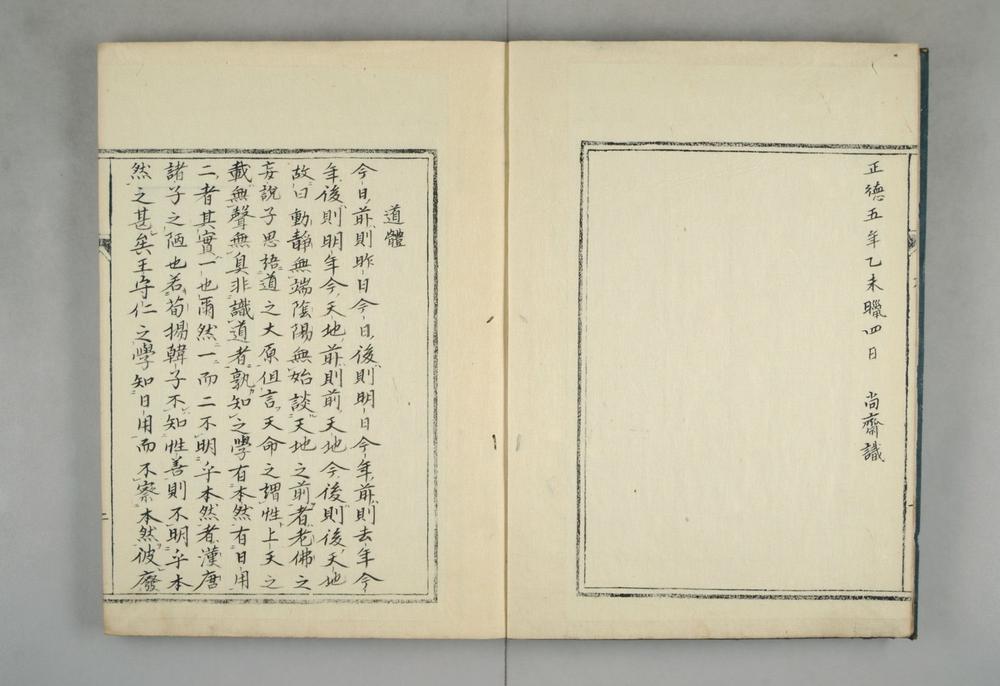 正德五年乙未臘四日　尚齋識
道體
今日前則昨日今日後則明日今年前則去年今
年後則明年今天地前則前天地今後則後天地
故曰動靜無端陰陽無始談天地之前者老佛之
妄說子思語道之大原但言天命之謂性上天之
載無聲無臭非識道者孰知之學有本然有日用
二者其實一也爾然一而二不明乎本然者漢唐
諸子之陋也若荀揚韓子不知性善則不明乎本
然之甚矣王守仁之學知日用而不察本然彼廢